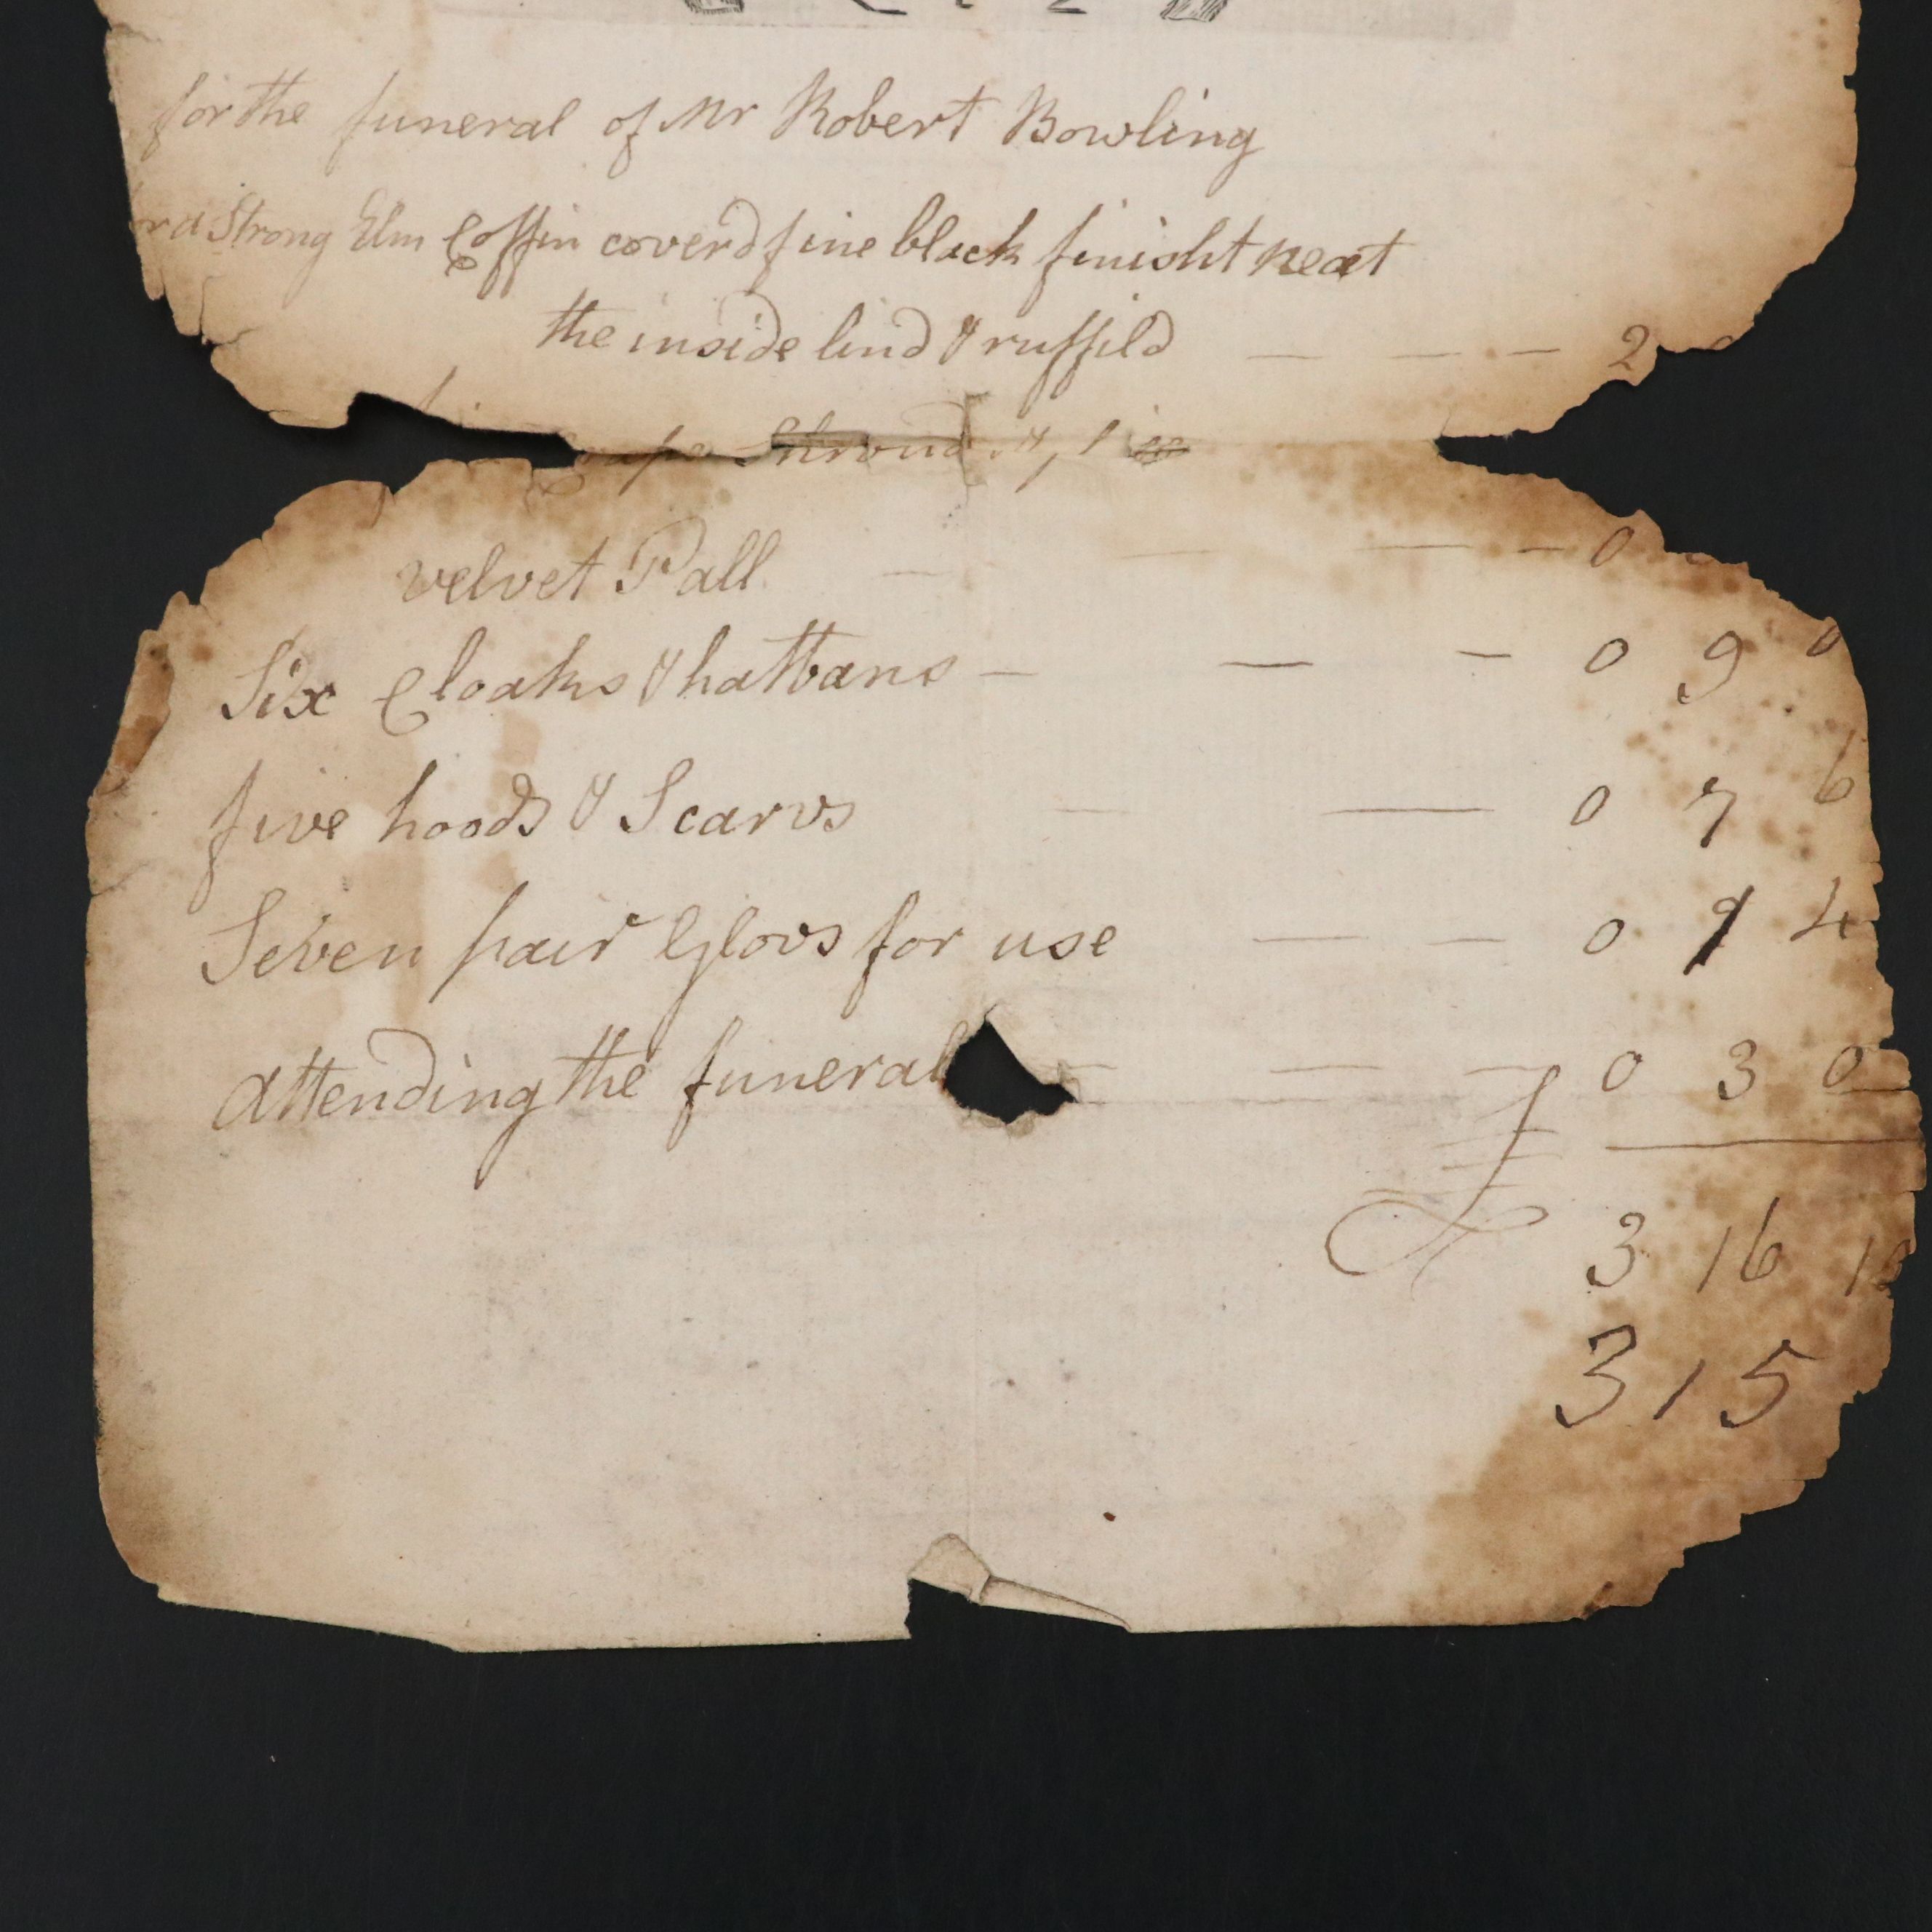 for the funeral of Mr Robert Bowling
Strong Elm Coffin coverd fine black finisht neat
the inside lind & ruffild — — — 2
Shroud &
velvet Pall — — — — 0
Six Cloaks & hatbans — — — 0 9 0
five hoods & Scarvs — — 0 7 6
Seven pair Glovs for use — — 0 9 4
attending the funeral — — — 0 3 0
£ 3 16 10
3 15